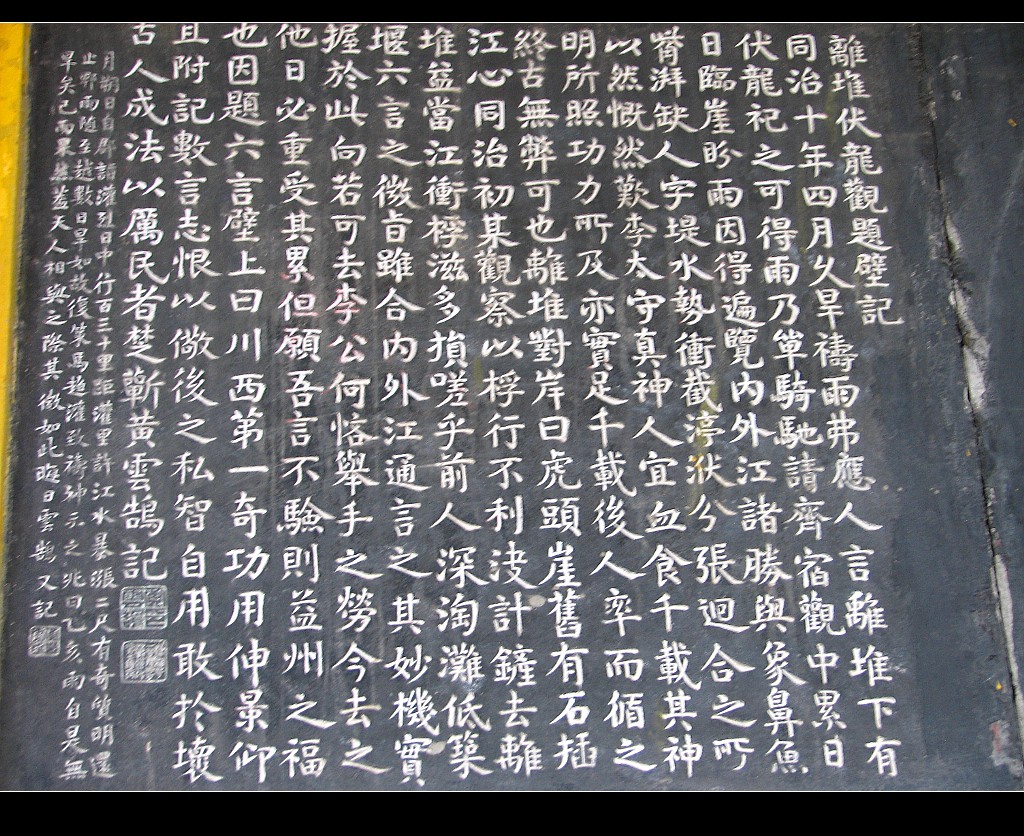 離堆伏龍觀題壁記
同治十年四月久旱禱雨弗應人言離堆下有
伏龍祀之可得雨乃單騎馳請齊宿觀中累日
日臨崖盼雨因得遍覽內外江諸勝與象鼻魚
嘴湃缺人字堤水勢衝截渟洑分張迴合之所
以然慨然歎李太守真神人宜血食千載其神
明所照功力所及亦實足千載後人率而循之
終古無弊可也離堆對岸曰虎頭崖舊有石插
江心同治初某觀察以桴行不利決計鏟去離
堆益當江衝桴滋多損嗟乎前人深淘灘低築
堰六言之微旨雖合內外江通言之其妙機實
握於此向若可去李公何恡舉手之勞今去之
他日必重受其累但願吾言不驗則益州之福
也因題六言壁上曰川西第一奇功用伸景仰
且附記數言志恨以儆後之私智自用敢於壞
古人成法以厲民者楚蘄黃雲鵠記
月朔日自郡詣灌烈日中行百三十里距灌里許江水暴漲二尺有奇質明還
止郫雨隨至越數日旱如故復策馬趨灌致禱神示之兆曰乙亥雨自是無
旱矣已而果然蓋天人相與之際其微如此晦日雲鵠又記